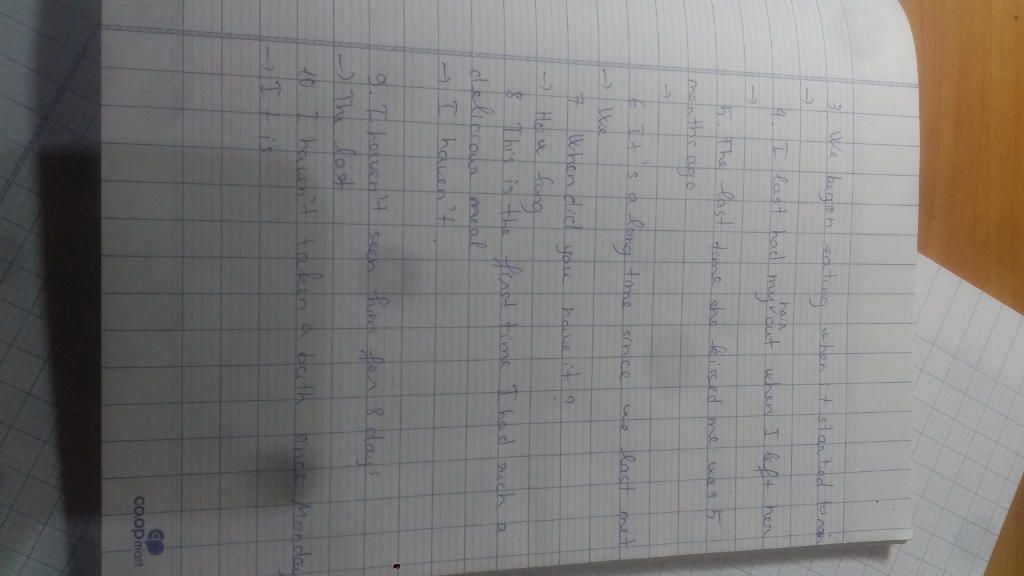 3. We began eating when it started to rain
→
4. I last had my hair cut when I left her
→
5. The last time she kissed me was 5
months ago
→
6 It's a long time since we last met
→ We
7 When did you have it?
→ How long
8 This is the first time I had such a
delicious meal
→ I haven't
9. I haven't seen him for 8 days
→ The last
10 I haven't taken a bath since Monday
→ It is
co.opmart